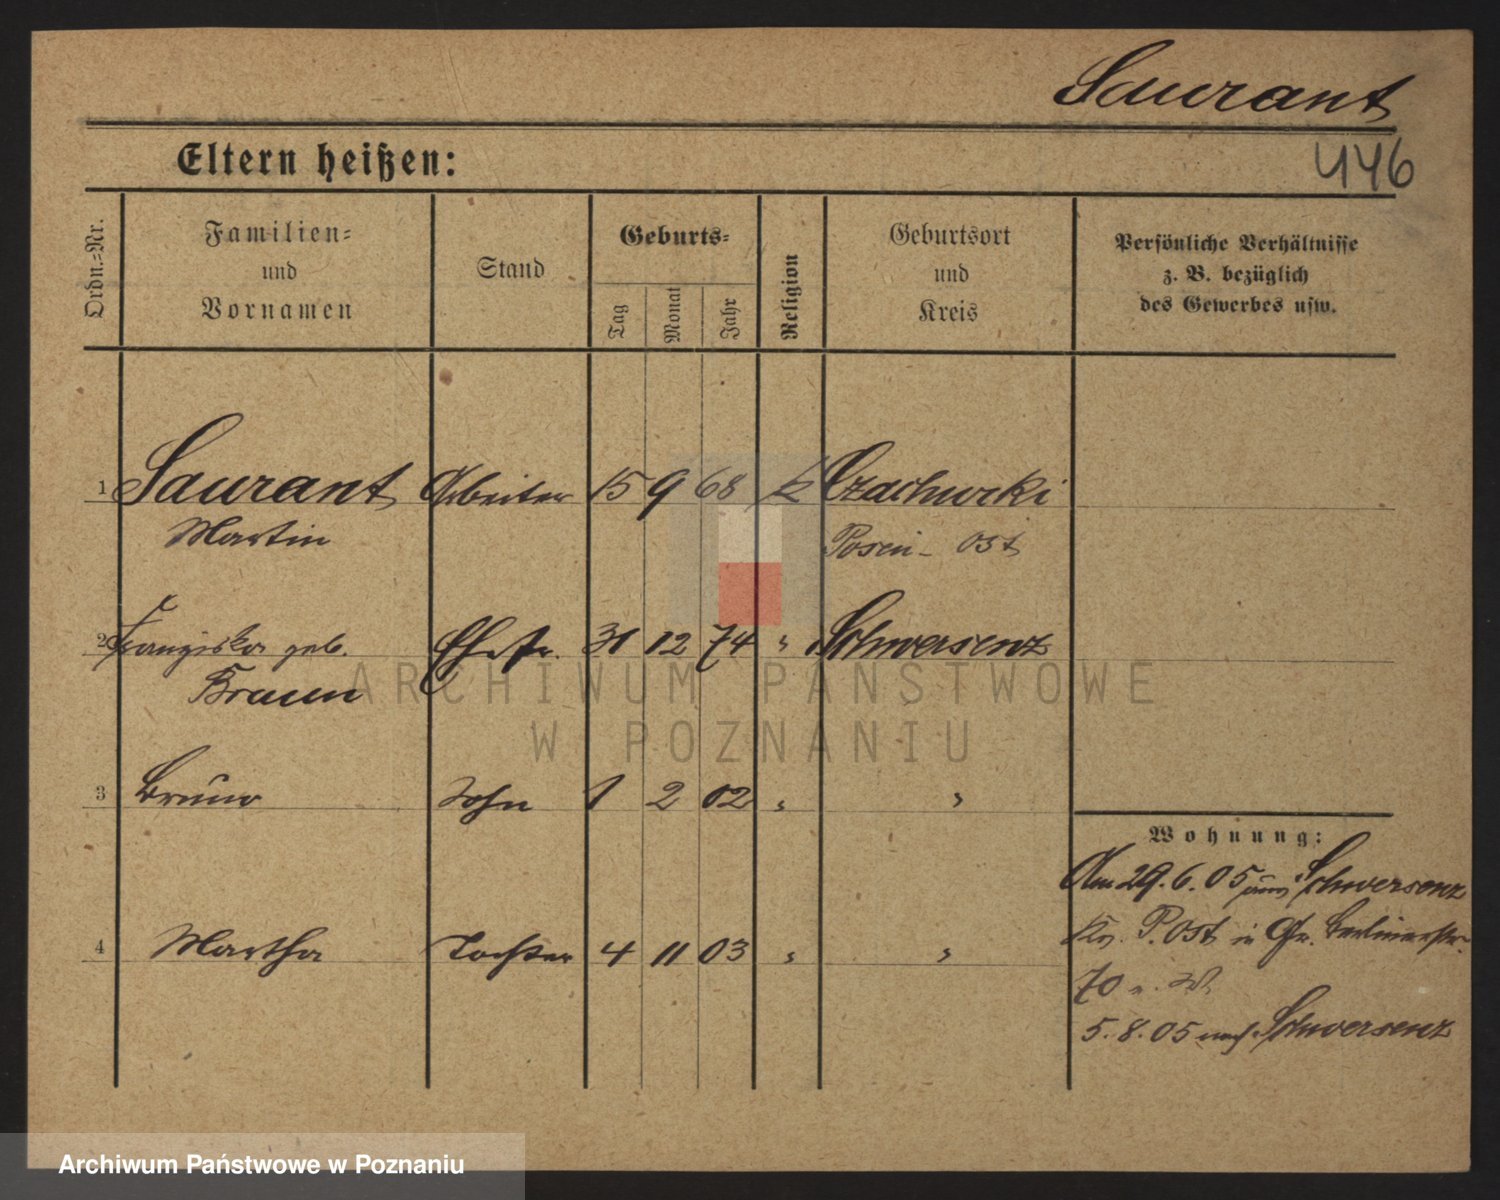 Saurant
Eltern heißen:
446
Ordn.-Nr.
Familien-
und
Vornamen
Stand
Geburts-
Tag
Monat
Jahr
Religion
Geburtsort
und
Kreis
Persönliche Verhältnisse
z. B. bezüglich
des Gewerbes usw.
1 Saurant Arbeiter 15 9 68 k Czachurki
Martin Posen-Ost
2 Franziska geb. Ehefr. 31 12 74 " Schwersenz
Braun
3 Bruno Sohn 1 2 02 " "
Wohnung:
Am 29.6.05 von Schwersenz
Kr. P. Ost in Gr. Berlinerstr.
4 Martha Tochter 4 11 03 " "
70 b. W.
5.8.05 nach Schwersenz
ARCHIWUM PAŃSTWOWE
W POZNANIU
Archiwum Państwowe w Poznaniu